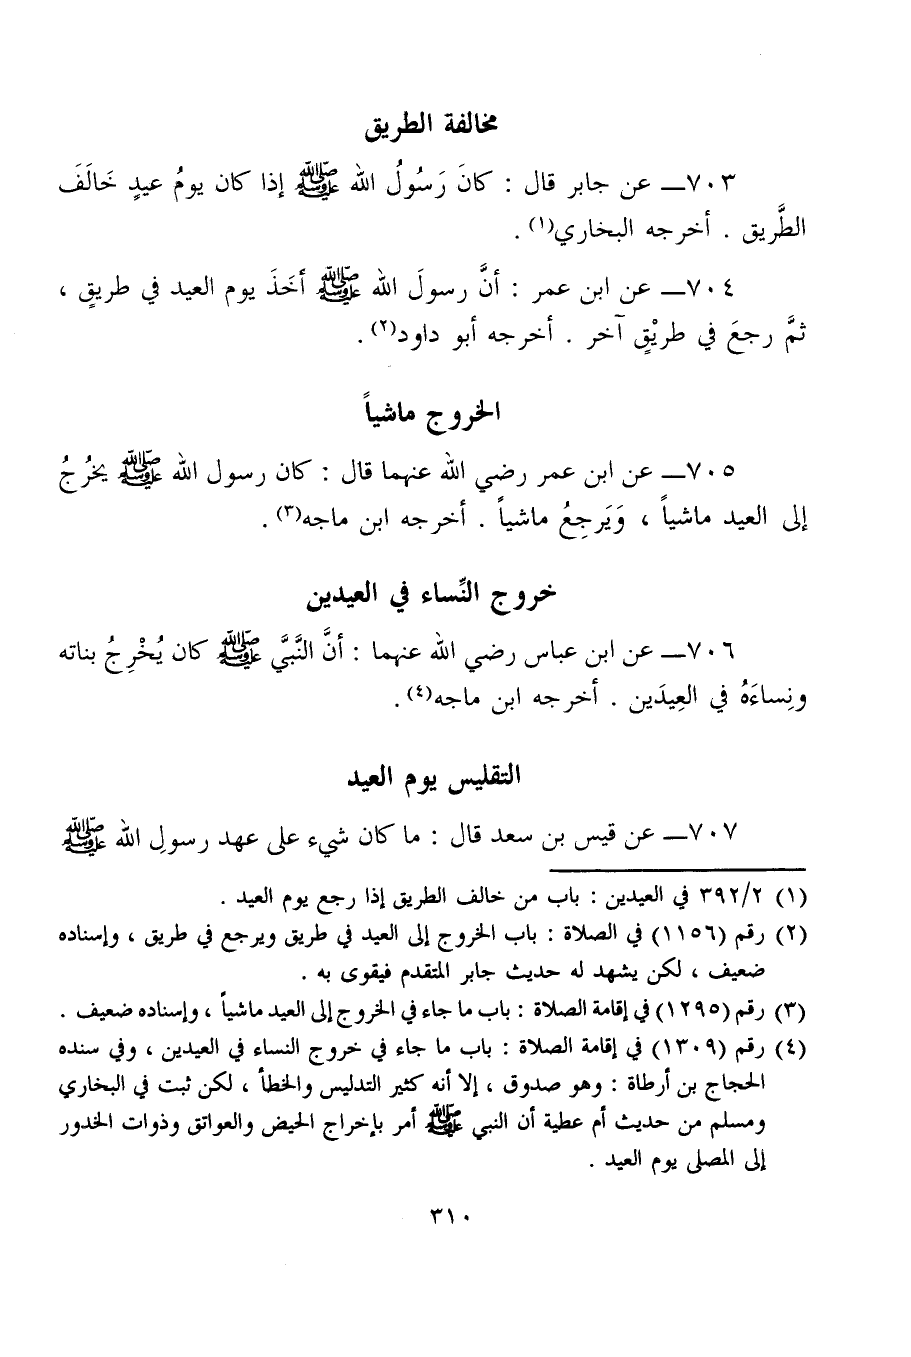 مخالفة الطريق
٧٠٣ـ عن جابر قال : كانَ رَسُولُ الله ﷺ إذا كان يومُ عيدٍ خَالَفَ
الطَّريق . أخرجه البخاري(١) .
٧٠٤ـ عن ابن عمر : أنَّ رسولَ الله ﷺ أخَذَ يوم العيد في طريقٍ ،
ثمَّ رجعَ في طريْقٍ آخر . أخرجه أبو داود(٢) .
الخروج ماشياً
٧٠٥ـ عن ابن عمر رضي الله عنهما قال : كان رسول الله ﷺ يخرُجُ
إلى العيد ماشياً ، وَيَرجِعُ ماشياً . أخرجه ابن ماجه(٣) .
خروج النِّساء في العيدين
٧٠٦ـ عن ابن عباس رضي الله عنهما : أنَّ النَّبيَّ ﷺ كان يُخْرِجُ بناته
ونِساءَهُ في العِيدَين . أخرجه ابن ماجه(٤) .
التقليس يوم العيد
٧٠٧ـ عن قيس بن سعد قال : ما كان شيء على عهد رسولِ الله ﷺ
(١) ٣٩٢/٢ في العيدين : باب من خالف الطريق إذا رجع يوم العيد .
(٢) رقم (١١٥٦) في الصلاة : باب الخروج إلى العيد في طريق ويرجع في طريق ، وإسناده
ضعيف ، لكن يشهد له حديث جابر المتقدم فيقوى به .
(٣) رقم (١٢٩٥) في إقامة الصلاة : باب ما جاء في الخروج إلى العيد ماشياً ، وإسناده ضعيف .
(٤) رقم (١٣٠٩) في إقامة الصلاة : باب ما جاء في خروج النساء في العيدين ، وفي سنده
الحجاج بن أرطاة : وهو صدوق ، إلا أنه كثير التدليس والخطأ ، لكن ثبت في البخاري
ومسلم من حديث أم عطية أن النبي ﷺ أمر بإخراج الحيض والعواتق وذوات الخدور
إلى المصلى يوم العيد .
٣١٠